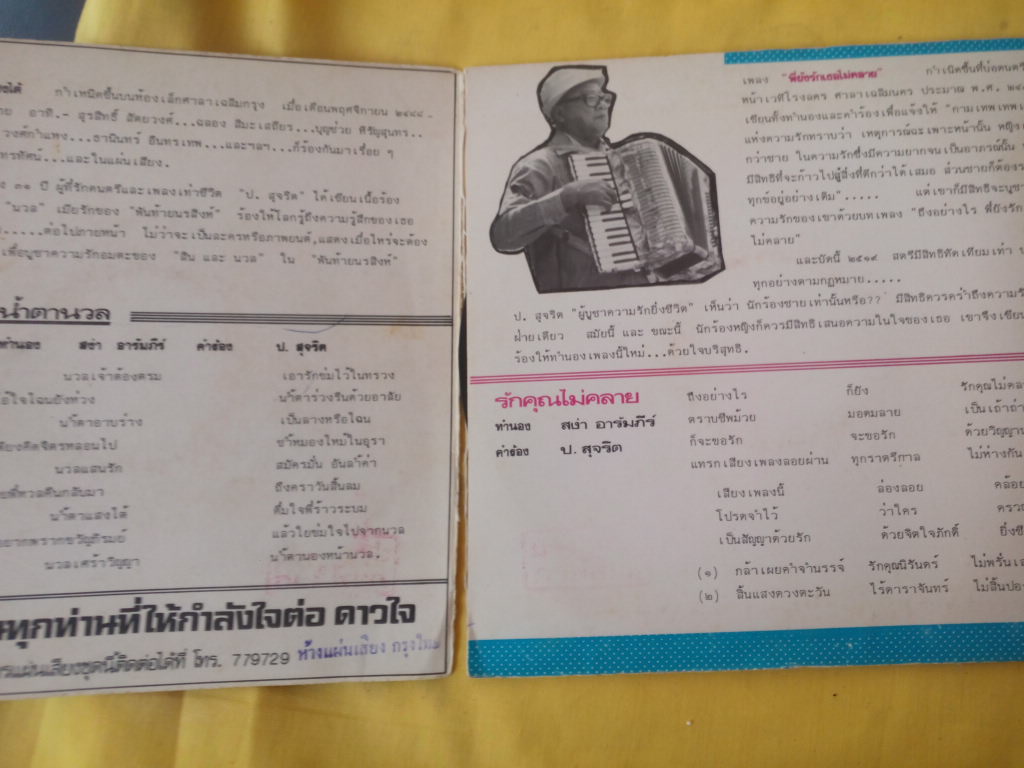 กำเหนิดขึ้นบนห้องเล็กศาลาเฉลิมกรุง เมื่อเดือนพฤศจิกายน ๒๔๘๘ -
อาทิ.- สุรสิทธิ์ สัตยวงศ์...ฉลอง สิมะเสถียร...บุญช่วย หิรัญสุนทร..
วงศ์กำแพง...ธานินทร์ อินทรเทพ...และฯลฯ...ก็ร้องกันมาเรื่อย ๆ
ทรทัศน์...และในแผ่นเสียง.
๓๑ ปี ผู้ที่รักดนตรีและเพลงเท่าชีวิต "ป. สุจริต" ได้เขียนเนื้อร้อง
"นวล" เมียรักของ "พันท้ายนรสิงห์" ร้องให้โลกรู้ถึงความรู้สึกของเธอ
.....ต่อไปภายหน้า ไม่ว่าจะเป็นละครหรือภาพยนต์,แสดงเมื่อไหร่จะต้อง
เพื่อบูชาความรักอมตะของ "สิน และ นวล" ใน "พันท้ายนรสิงห์"
น้ำตานวล
ทำนอง สง่า อารัมภีร์ คำร้อง ป. สุจริต
นวลเจ้าต้องตรม เอารักข่มไว้ในทรวง
น้ำตาร่วงรินด้วยอาลัย
น้ำตาอาบร่าง เป็นลางหรือไฉน
ช้ำหมองไหม้ในอุรา
นวลแสนรัก สมัครมั่น
ถึงคราวันสิ้นลม
น้ำตาแสงไต้ ดื่มใจพี่ร้าวระบม
แล้วไยข่มใจไปจากนวล
นวลเศร้าวิญญา น้ำตานองหน้านวล.
ทุกท่านที่ให้กำลังใจต่อ ดาวใจ
แผ่นเสียงชุดนี้ติดต่อได้ที่ โทร. 779729 ห้างแผ่นเสียง กรุงไทย
เพลง "พี่ยังรักเธอไม่คลาย" กำเนิดขึ้นที่บ่อดนตรี
หน้าเวทีโรงละคร ศาลาเฉลิมนคร ประมาณ พ.ศ.
เขียนทั้งทำนองและคำร้องเพื่อแจ้งให้ "กามเทพ
แห่งความรักทราบว่า เหตุการณ์ฉะเพาะหน้านั้น
กว่าชาย ในความรักซึ่งมีความยากจนเป็นอาภรณ์นั้น
มีสิทธิที่จะก้าวไปสู่สิ่งที่ดีกว่าได้เสมอ ส่วนชายก็ต้อง
ทุกข์อยู่อย่างเดิม"..... แต่เขาก็มีสิทธิจะบูชา
ความรักของเขาด้วยบทเพลง "ถึงอย่างไร พี่ยังรัก
ไม่คลาย"
และบัดนี้ ๒๕๑๙ สตรีมีสิทธิทัดเทียมเท่า
ทุกอย่างตามกฎหมาย.....
ป. สุจริต "ผู้บูชาความรักยิ่งชีวิต" เห็นว่า นักร้องชายเท่านั้นหรือ?? มีสิทธิควรคร่ำถึงความรัก
ฝ่ายเดียว สมัยนี้ และ ขณะนี้ นักร้องหญิงก็ควรมีสิทธิเสนอความในใจของเธอ เขาจึงเขียน
ร้องให้ทำนองเพลงนี้ใหม่...ด้วยใจบริสุทธิ์.
รักคุณไม่คลาย
ทำนอง สง่า อารัมภีร์
คำร้อง ป. สุจริต
ถึงอย่างไร ก็ยัง รักคุณไม่คลาย
ตราบชีพม้วย มอดมลาย เป็นเถ้าถ่าน
ก็จะขอรัก จะขอรัก ด้วยวิญญาณ
แทรกเสียงเพลงลอยผ่าน ทุกราตรีกาล ไม่ห่างกัน
เสียงเพลงนี้ ล่องลอย
โปรดจำไว้ ว่าใคร
เป็นสัญญาด้วยรัก ด้วยจิตใจภักดิ์
(๑) กล้าเผยคำจำนรรจ์ รักคุณนิรันดร์
(๒) สิ้นแสงดวงตะวัน ไร้ดาราจันทร์